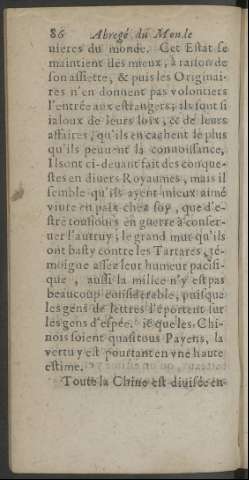 86 Abregé du Monde
uieres du monde. Cet Estat se
maintient des mieux, à raison de
son assiette, & puis les Originai-
res n'en donnent pas volontiers
l'entrée aux estrangers; ils sont si
ialoux de leurs loix, & de leurs
affaires, qu'ils en cachent le plus
qu'ils peuuent la connoissance.
Ils ont ci-deuant fait des conque-
stes en diuers Royaumes, mais il
semble qu'ils ayent mieux aimé
viure en paix chez soy, que d'e-
stre tousiours en guerre à conser-
uer l'autruy; le grand mur qu'ils
ont basty contre les Tartares, té-
moigne assez leur humeur pacifi-
que, aussi la milice n'y est pas
beaucoup considerable, puisque
les gens de lettres l'éportent sur
les gens d'espée. que les Chi-
nois soient quasi tous Payens, la
vertu y est pourtant en vne haute
estime.
Toute la Chine est diuisée en